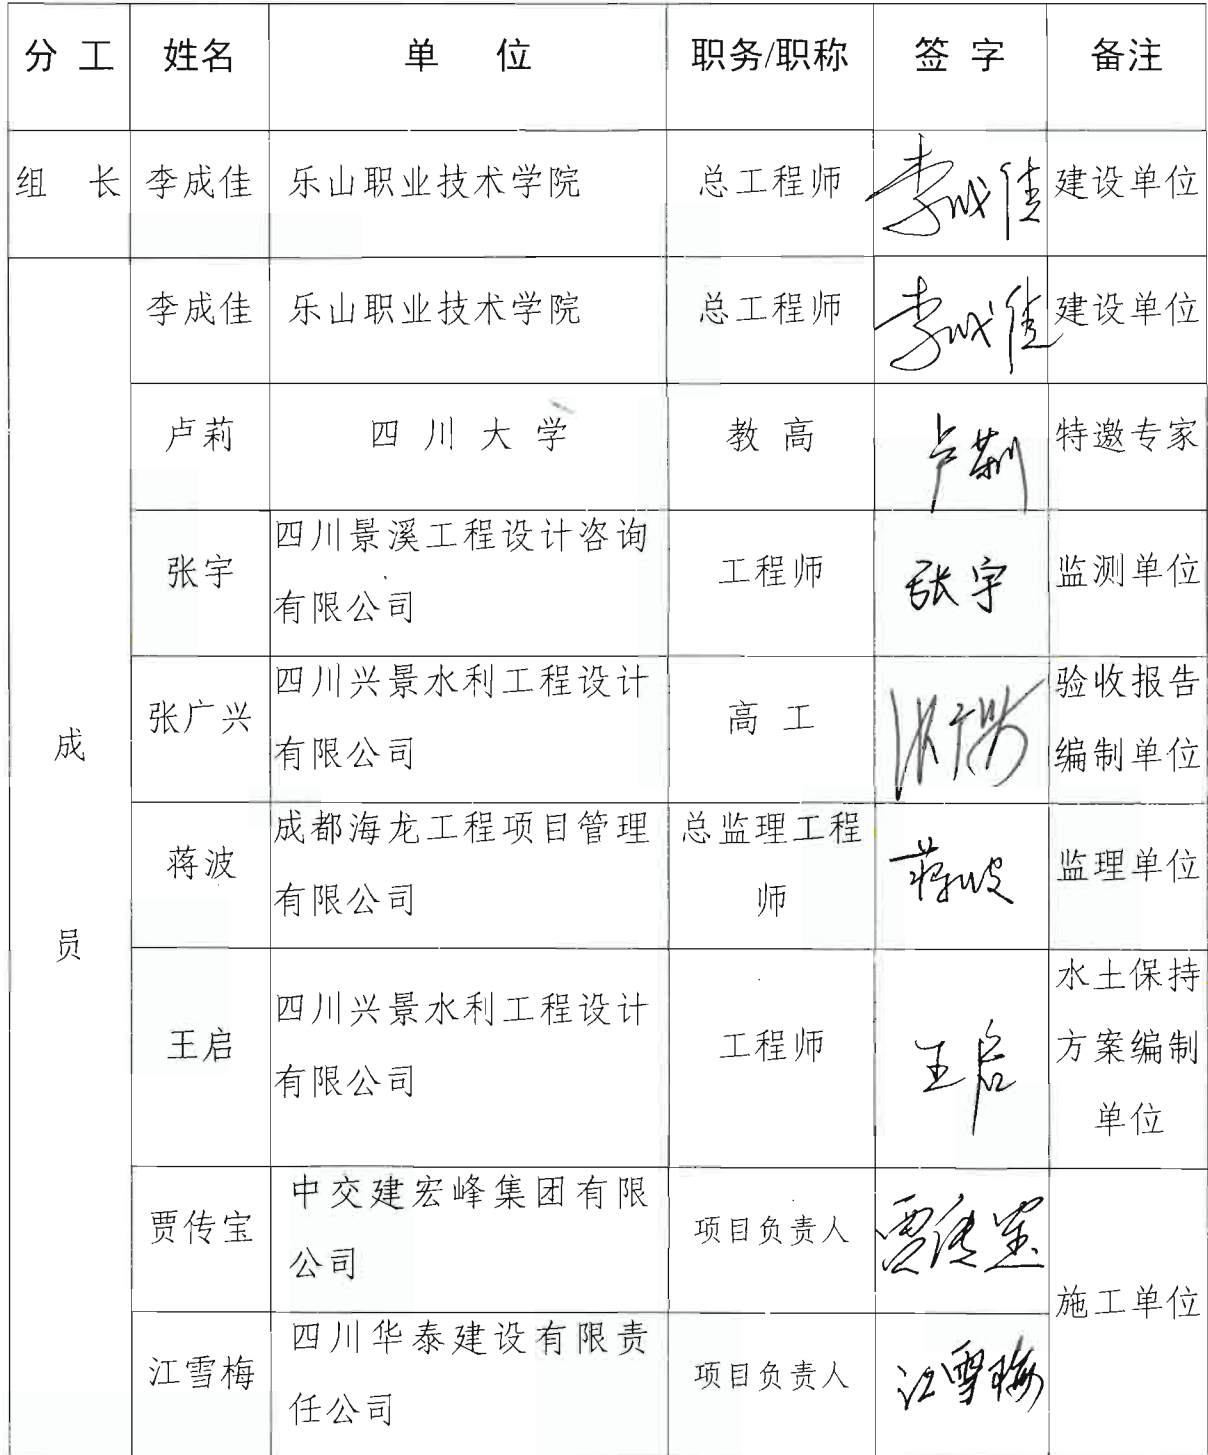 分 工 姓名 单 位 职务/职称 签 字 备注
组 长 李成佳 乐山职业技术学院 总工程师 李成佳 建设单位
李成佳 乐山职业技术学院 总工程师 李成佳 建设单位
卢莉 四川大学 教高 卢莉 特邀专家
张宇 四川景溪工程设计咨询
有限公司 工程师 张宇 监测单位
张广兴 四川兴景水利工程设计
有限公司 高工 张广兴 验收报告
编制单位
成
员
蒋波 成都海龙工程项目管理
有限公司 总监理工程
师 蒋波 监理单位
王启 四川兴景水利工程设计
有限公司 工程师 王启 水土保持
方案编制
单位
贾传宝 中交建宏峰集团有限
公司 项目负责人 贾传宝 施工单位
江雪梅 四川华泰建设有限责
任公司 项目负责人 江雪梅